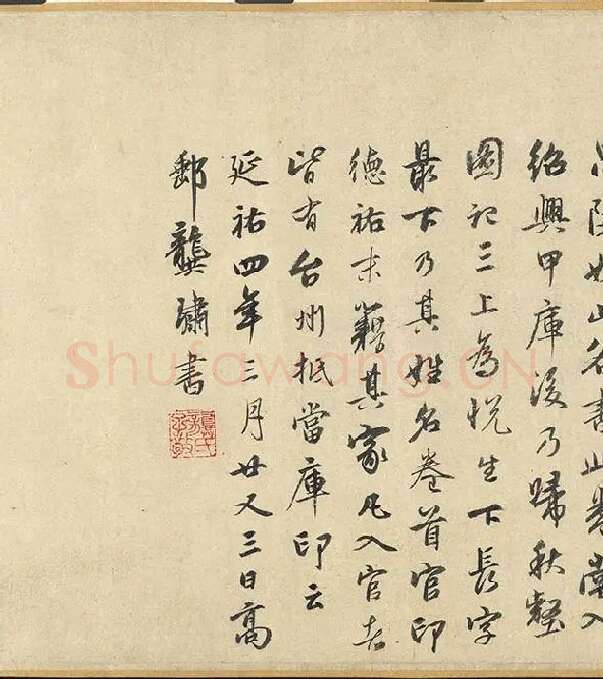 思陵好山谷書此卷嘗入
紹興甲庫後乃歸秋壑
圖記三上為悅生下長字
最下乃其姓名卷首官印
德祐末籍其家凡入官者
皆有台州抵當庫印云
延祐四年三月廿又三日高
郵龔璛書
龔氏子敬
Shufawang.CN